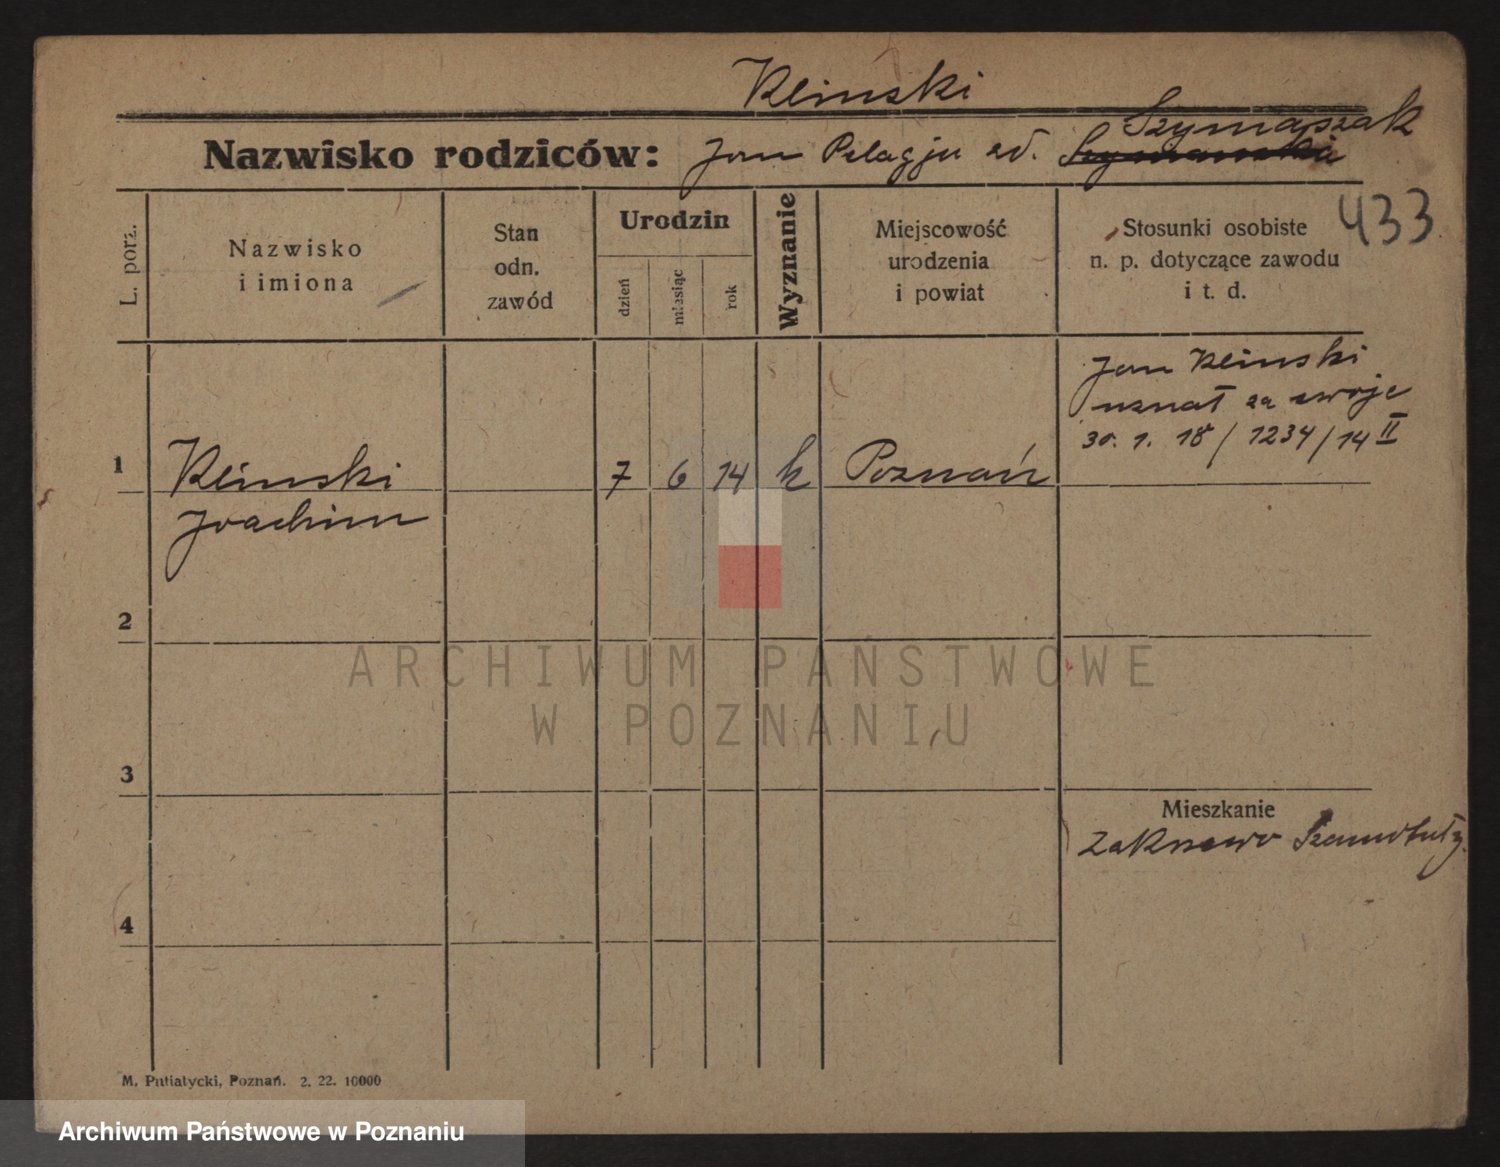 Klinski
Szymaszak
Nazwisko rodziców: Jan Pelagju zd. Szymanska
433
L. porz.
Nazwisko
i imiona
Stan
odn.
zawód
Urodzin
dzień
miesiąc
rok
Wyznanie
Miejscowość
urodzenia
i powiat
Stosunki osobiste
n. p. dotyczące zawodu
i t. d.
Jan Klinski
uznał za swoje
30. 1. 18 / 1234 / 14 II
1 Klinski 7 6 14 k Poznań
Joachim
2
ARCHIWUM PAŃSTWOWE
W POZNANIU
3
Mieszkanie
Szamotuły
4
M. Putiatycki, Poznań. 2. 22. 10000
Archiwum Państwowe w Poznaniu